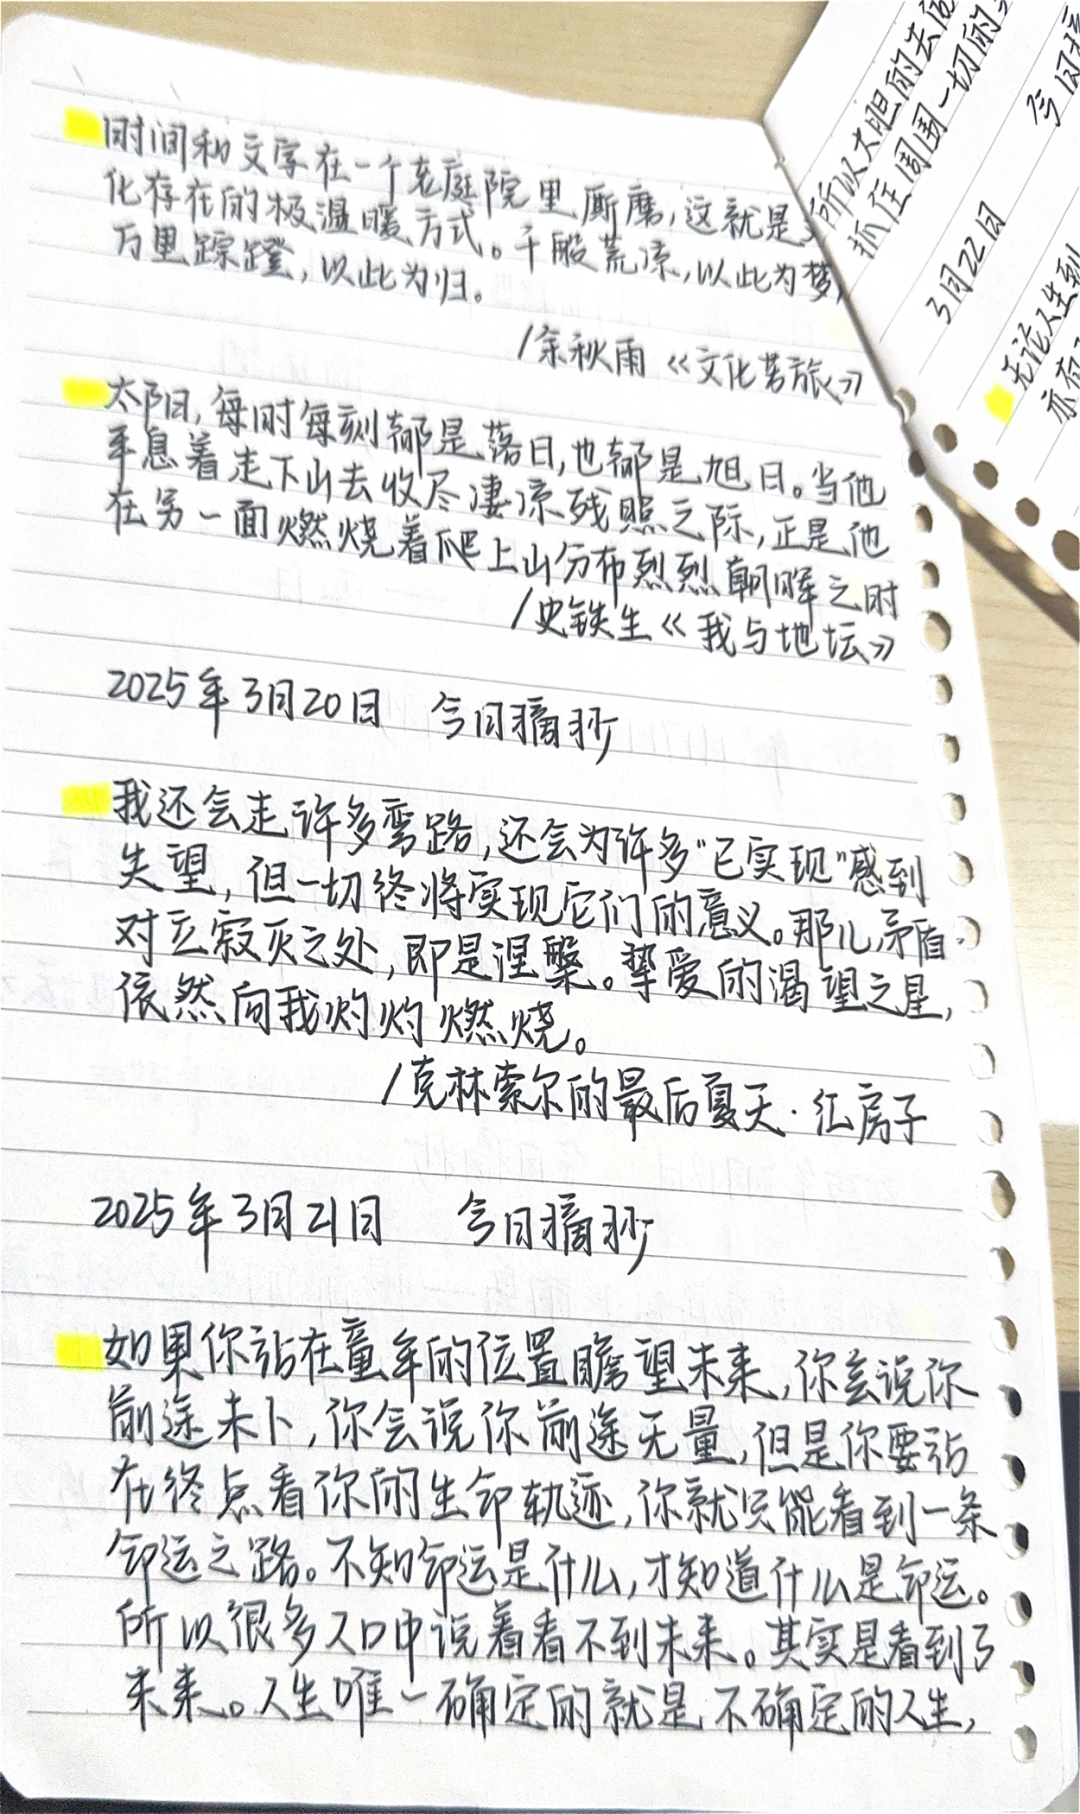 时间和文字在一个老庭院里厮磨，这就是
化存在的极温暖方式。千般荒凉，以此为梦，
万里蹀蹬，以此为归。
/余秋雨《文化苦旅》
太阳，每时每刻都是落日，也都是旭日。当他
平息着走下山去收尽凄凉残照之际，正是他
在另一面燃烧着爬上山分布烈烈朝晖之时
/史铁生《我与地坛》
2025年3月20日 今日摘抄
我还会走许多弯路，还会为许多"已实现"感到
失望，但一切终将实现它们的意义。那儿，矛盾·
对立寂灭之处，即是涅槃。挚爱的渴望之星，
依然向我灼灼燃烧。
/克林索尔的最后夏天·红房子
2025年3月21日 今日摘抄
如果你站在童年的位置瞻望未来，你会说你
前途未卜，你会说你前途无量，但是你要站
在终点看你的生命轨迹，你就只能看到一条
命运之路。不知命运是什么，才知道什么是命运。
所以很多人口中说着看不到未来。其实是看到了
未来。人生唯一确定的就是不确定的人生，
所以大胆的去
抓住周围一切的
3月22日 今日摘
无论人生到
亦有